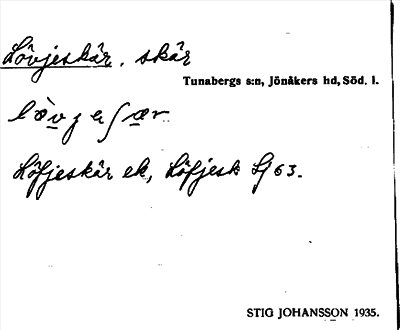 Lövjeskär, skär
Tunabergs s:n, Jönåkers hd, Söd. l.
lèv̠jeʃær
Löfjeskär ek, Löfjesk Sj 63.
STIG JOHANSSON 1935.